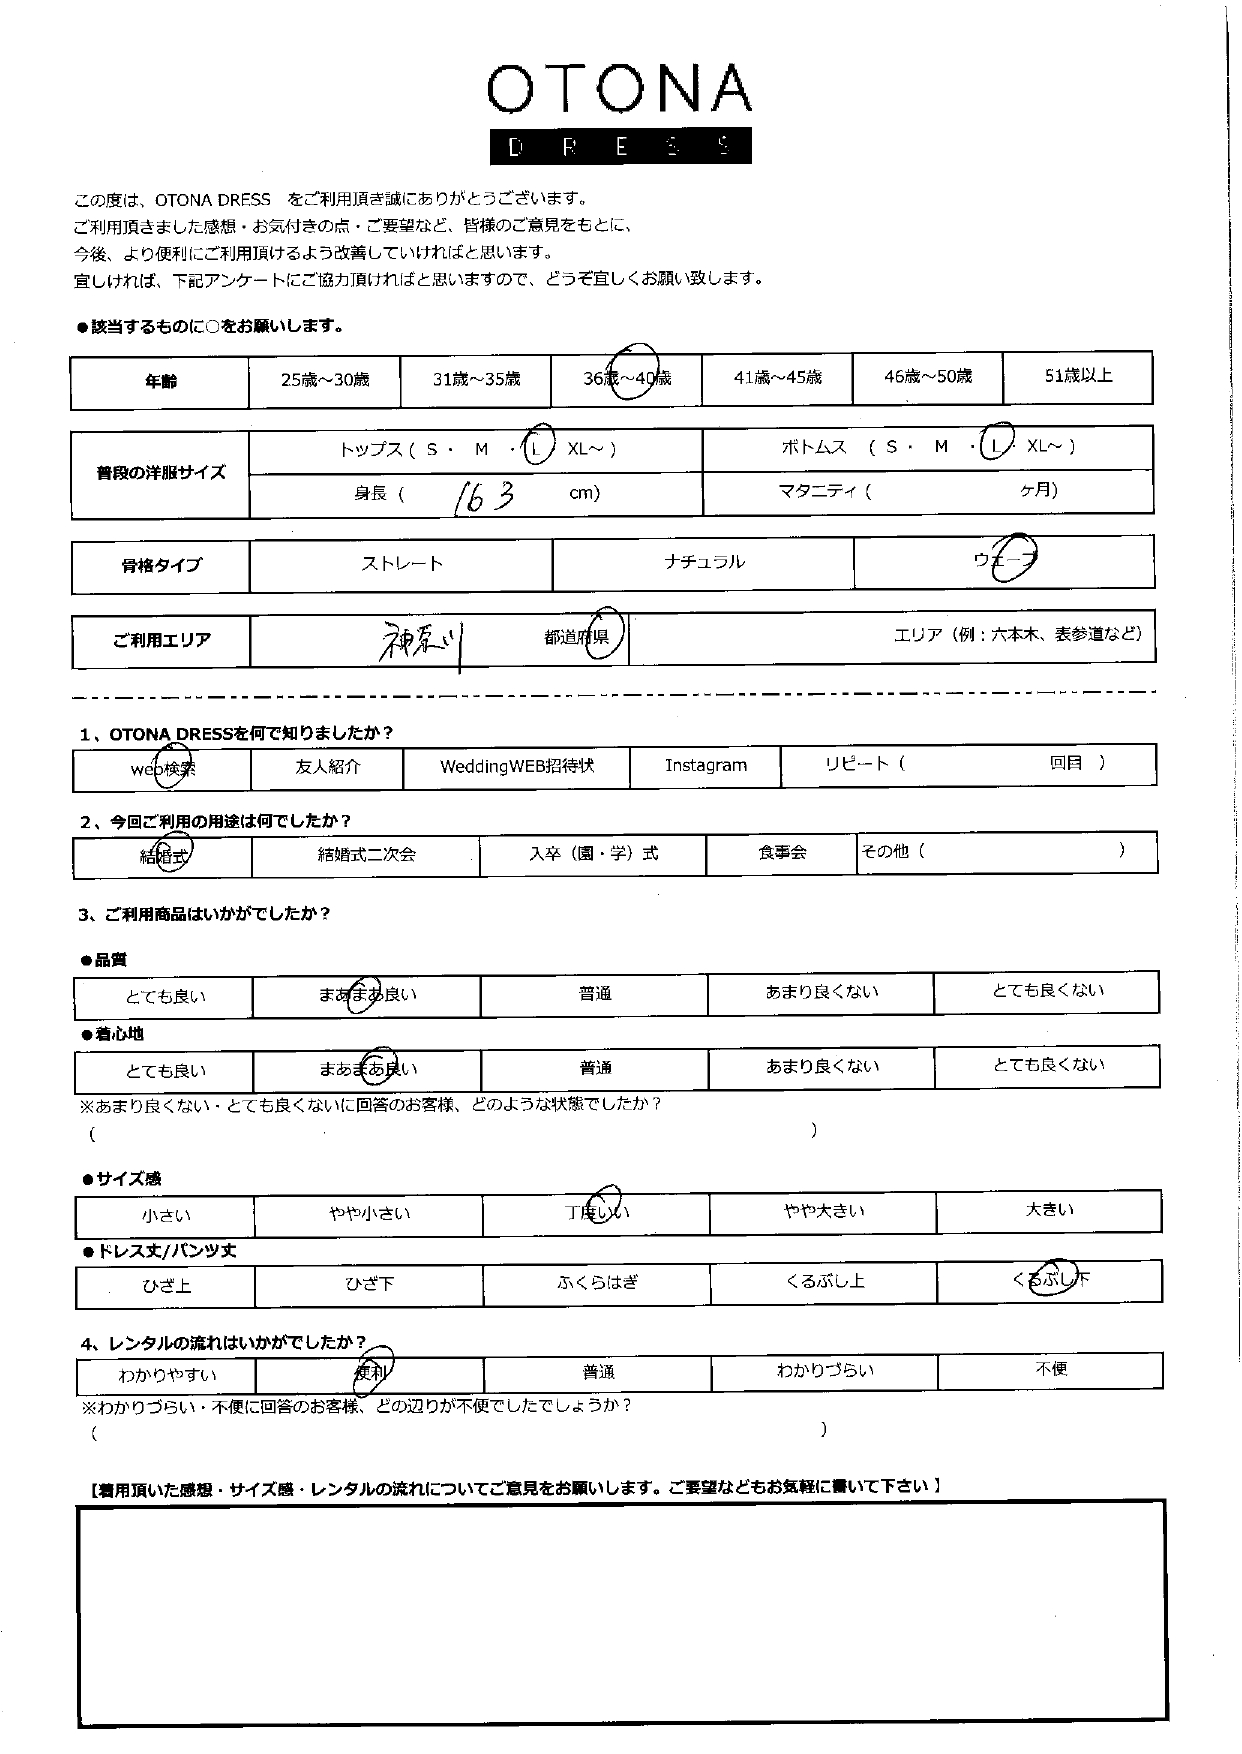 OTONA
DRESS
この度は、OTONA DRESS をご利用頂き誠にありがとうございます。
ご利用頂きました感想・お気付きの点・ご要望など、皆様のご意見をもとに、
今後、より便利にご利用頂けるよう改善していければと思います。
宜しければ、下記アンケートにご協力頂ければと思いますので、どうぞ宜しくお願い致します。
●該当するものに○をお願いします。
年齢 25歳～30歳 31歳～35歳 36歳～40歳 41歳～45歳 46歳～50歳 51歳以上
普段の洋服サイズ トップス（ S ・ M ・ L XL～ ） ボトムス （ S ・ M ・ L ・ XL～ ）
身長（ 163 cm） マタニティ（ ケ月）
骨格タイプ ストレート ナチュラル ウェーブ
ご利用エリア 神奈川 都道府県 エリア（例：六本木、表参道など）
1、OTONA DRESSを何で知りましたか？
web検索 友人紹介 WeddingWEB招待状 Instagram リピート（ 回目 ）
2、今回ご利用の用途は何でしたか？
結婚式 結婚式二次会 入卒（園・学）式 食事会 その他（ ）
3、ご利用商品はいかがでしたか？
●品質
とても良い まあまあ良い 普通 あまり良くない とても良くない
●着心地
とても良い まあまあ良い 普通 あまり良くない とても良くない
※あまり良くない・とても良くないに回答のお客様、どのような状態でしたか？
（ ）
●サイズ感
小さい やや小さい 丁度いい やや大きい 大きい
●ドレス丈/パンツ丈
ひざ上 ひざ下 ふくらはぎ くるぶし上 くるぶし下
4、レンタルの流れはいかがでしたか？
わかりやすい 便利 普通 わかりづらい 不便
※わかりづらい・不便に回答のお客様、どの辺りが不便でしたでしょうか？
（ ）
【着用頂いた感想・サイズ感・レンタルの流れについてご意見をお願いします。ご要望などもお気軽に書いて下さい】